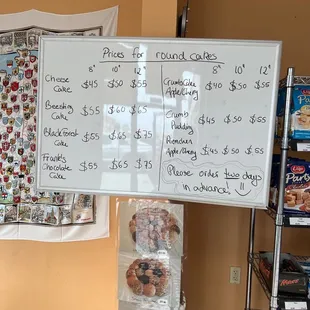 Prices for round cakes
8" 10" 12"
Cheese Cake $45 $50 $55
Beesting Cake $55 $60 $65
Black Forest Cake $55 $65 $75
Frank's Chocolate Cake $55 $65 $75
8" 10" 12"
Crumb Cake Apple/Cherry $40 $50 $55
Crumb Pudding $45 $50 $55
Apple/Cherry $45 $50 $55
Please order two days in advance!